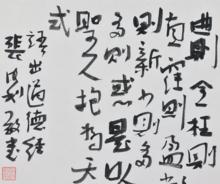 曲則全枉則
直窪則盈
則新少則多
多則惑是以
聖人抱一為天
式
語出道德經
敬書